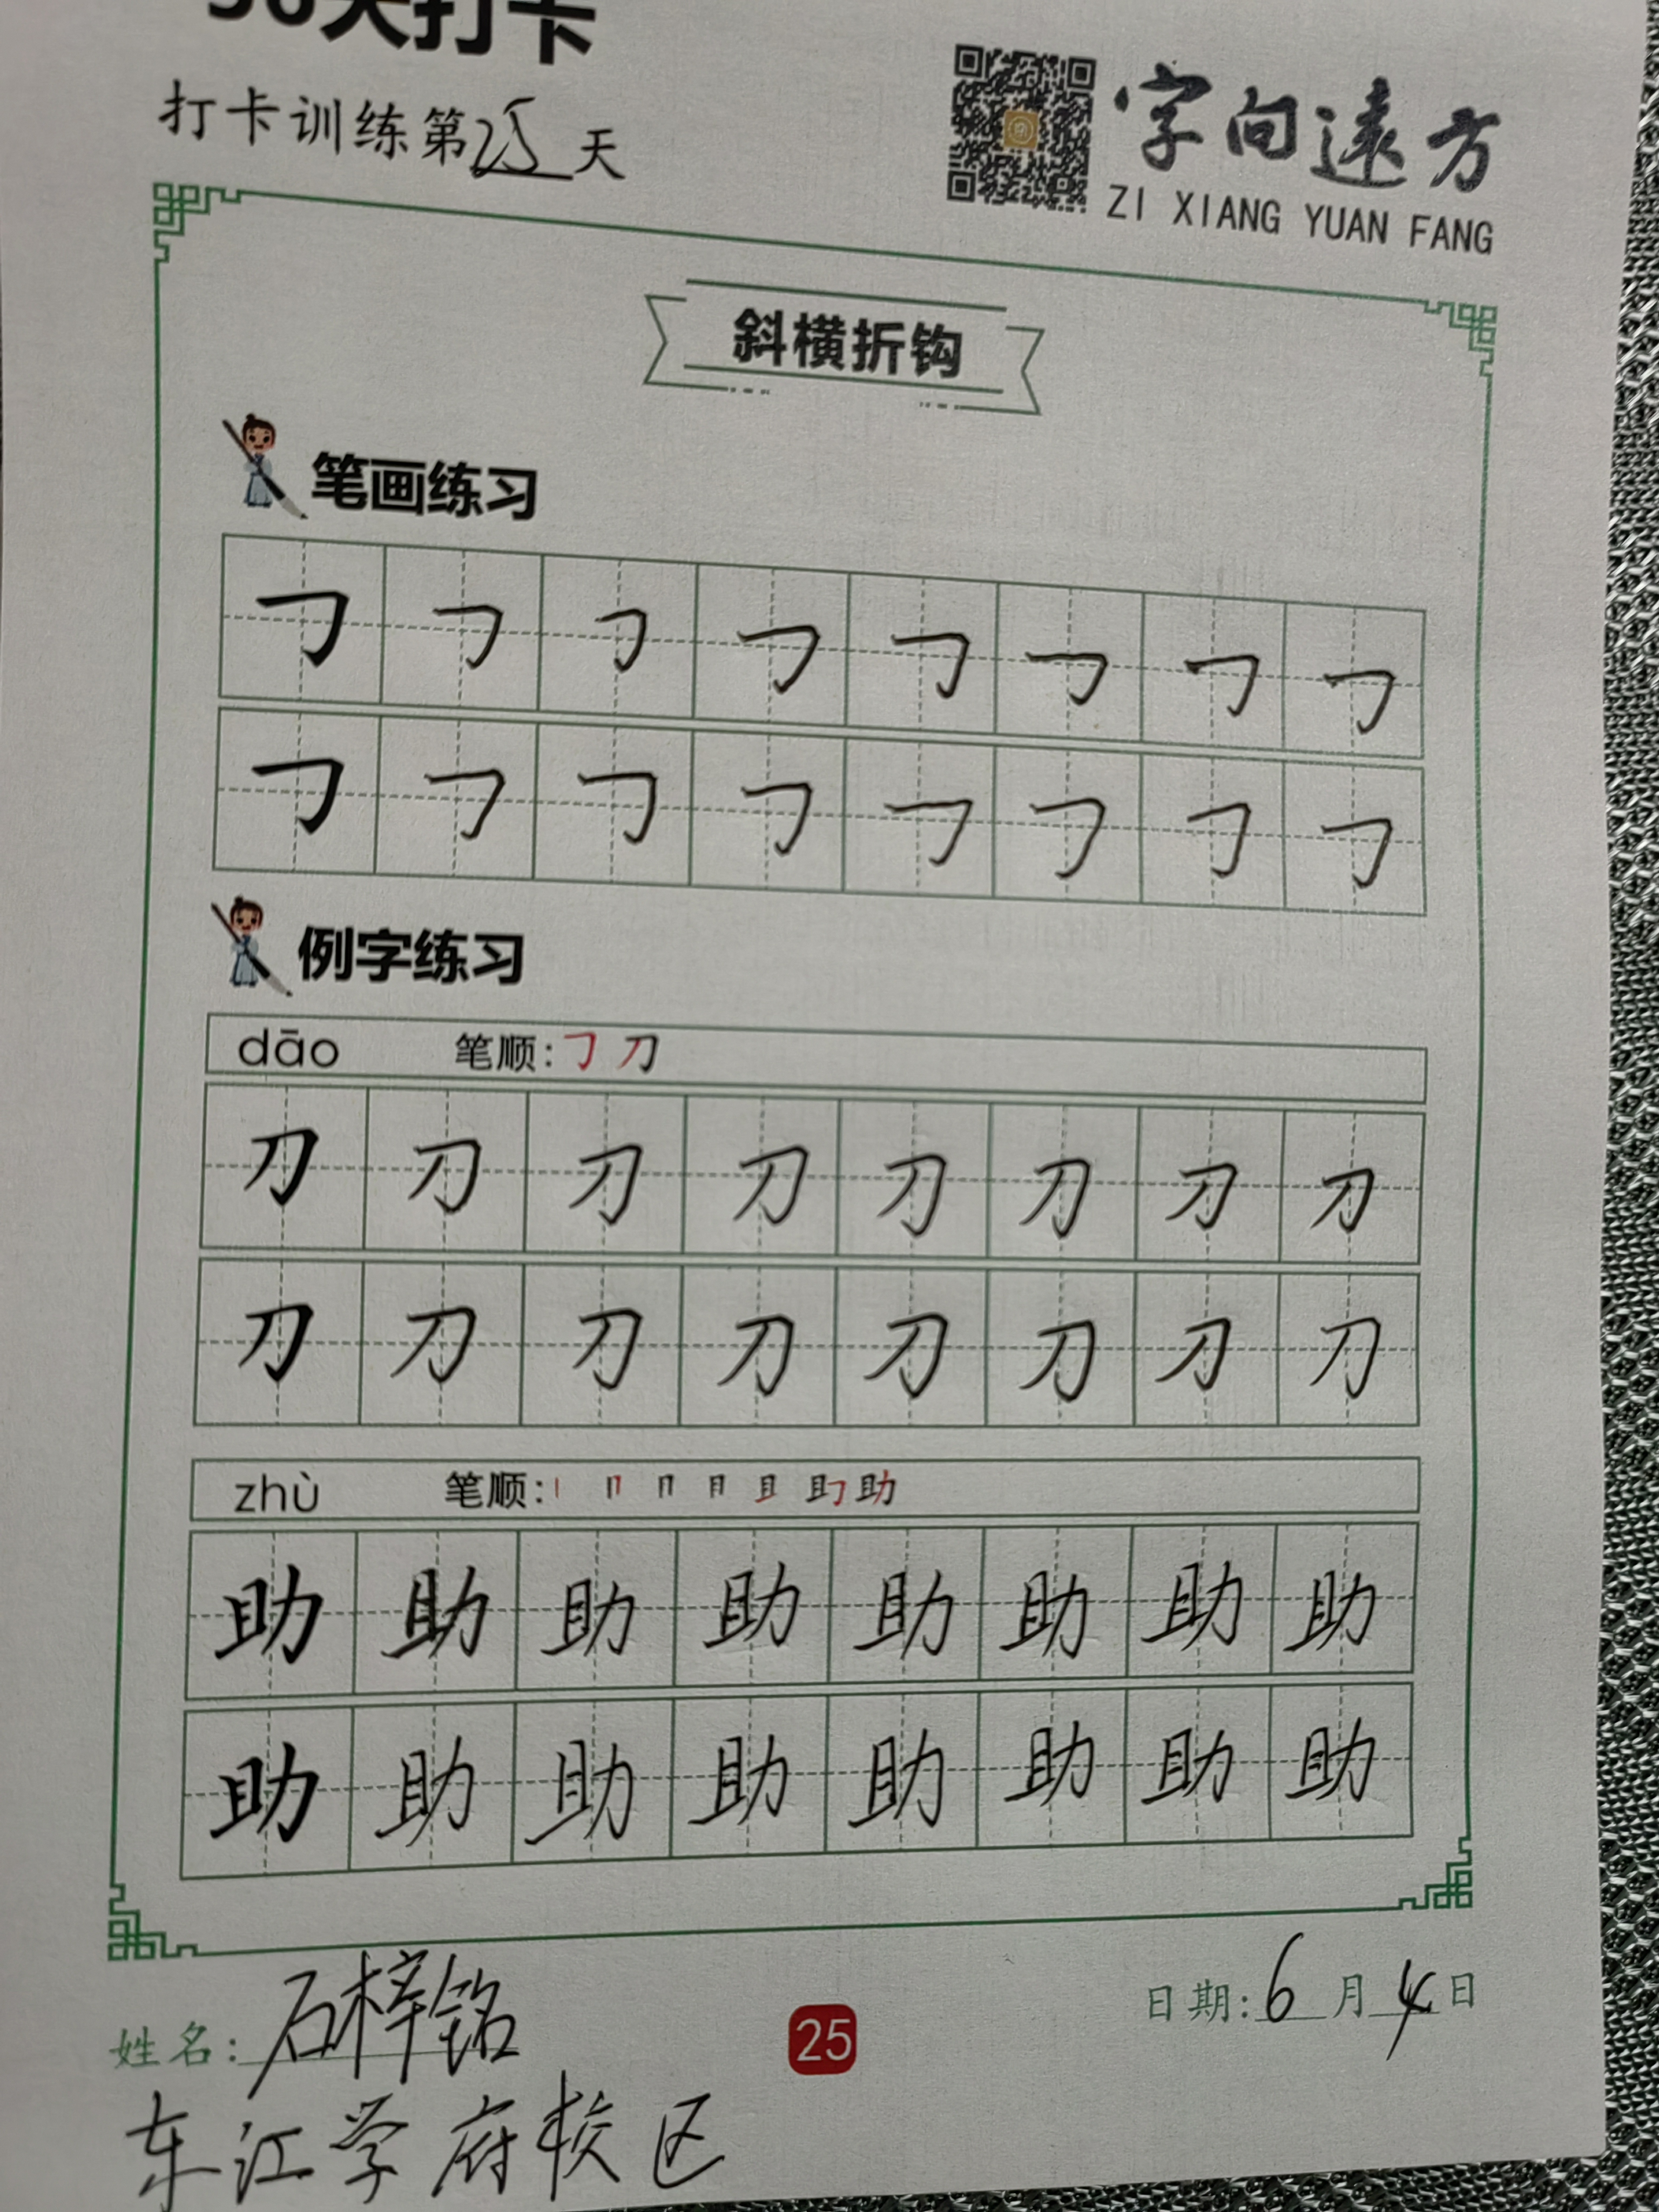 天打卡
打卡训练第25天
字向遠方
ZI XIANG YUAN FANG
斜横折钩
笔画练习
㇆ ㇆ ㇆ ㇆ ㇆ ㇆ ㇆ ㇆
㇆ ㇆ ㇆ ㇆ ㇆ ㇆ ㇆ ㇆
例字练习
dāo 笔顺:㇆ 刀
刀 刀 刀 刀 刀 刀 刀 刀
刀 刀 刀 刀 刀 刀 刀 刀
zhù 笔顺:
助 助 助 助 助 助 助 助
助 助 助 助 助 助 助 助
姓名:石梓铭
25
日期:6月4日
东江学府校区